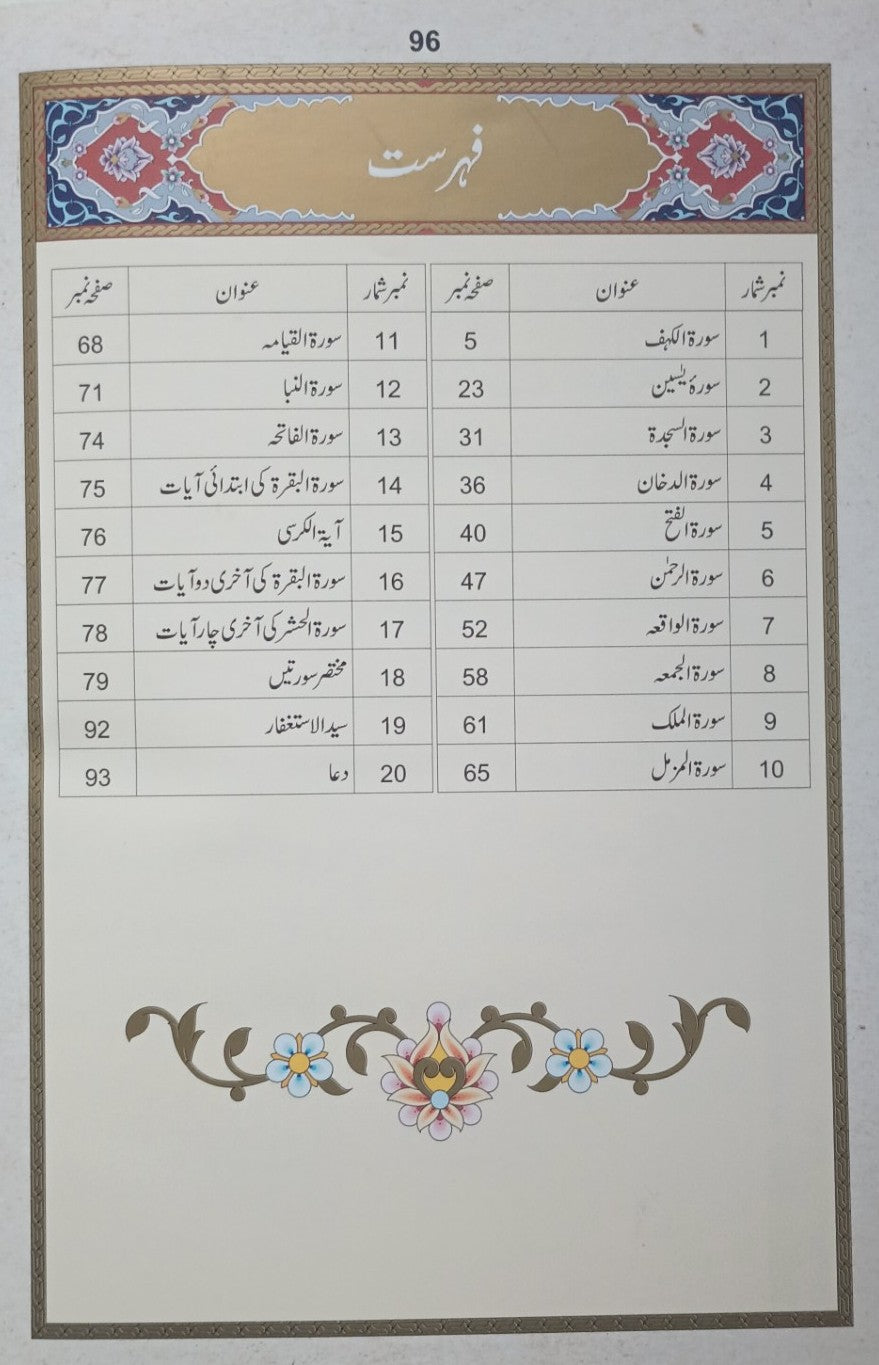 96
فہرست
نمبر شمار عنوان صفحہ نمبر
1 سورۃ الکہف 5
2 سورۂ یٰسین 23
3 سورۃ السجدۃ 31
4 سورۃ الدخان 36
5 سورۃ الفتح 40
6 سورۃ الرحمٰن 47
7 سورۃ الواقعہ 52
8 سورۃ الجمعہ 58
9 سورۃ الملک 61
10 سورۃ المزمل 65
نمبر شمار عنوان صفحہ نمبر
11 سورۃ القیامہ 68
12 سورۃ النبا 71
13 سورۃ الفاتحہ 74
14 سورۃ البقرۃ کی ابتدائی آیات 75
15 آیۃ الکرسی 76
16 سورۃ البقرۃ کی آخری دو آیات 77
17 سورۃ الحشر کی آخری چار آیات 78
18 مختصر سورتیں 79
19 سید الاستغفار 92
20 دعا 93